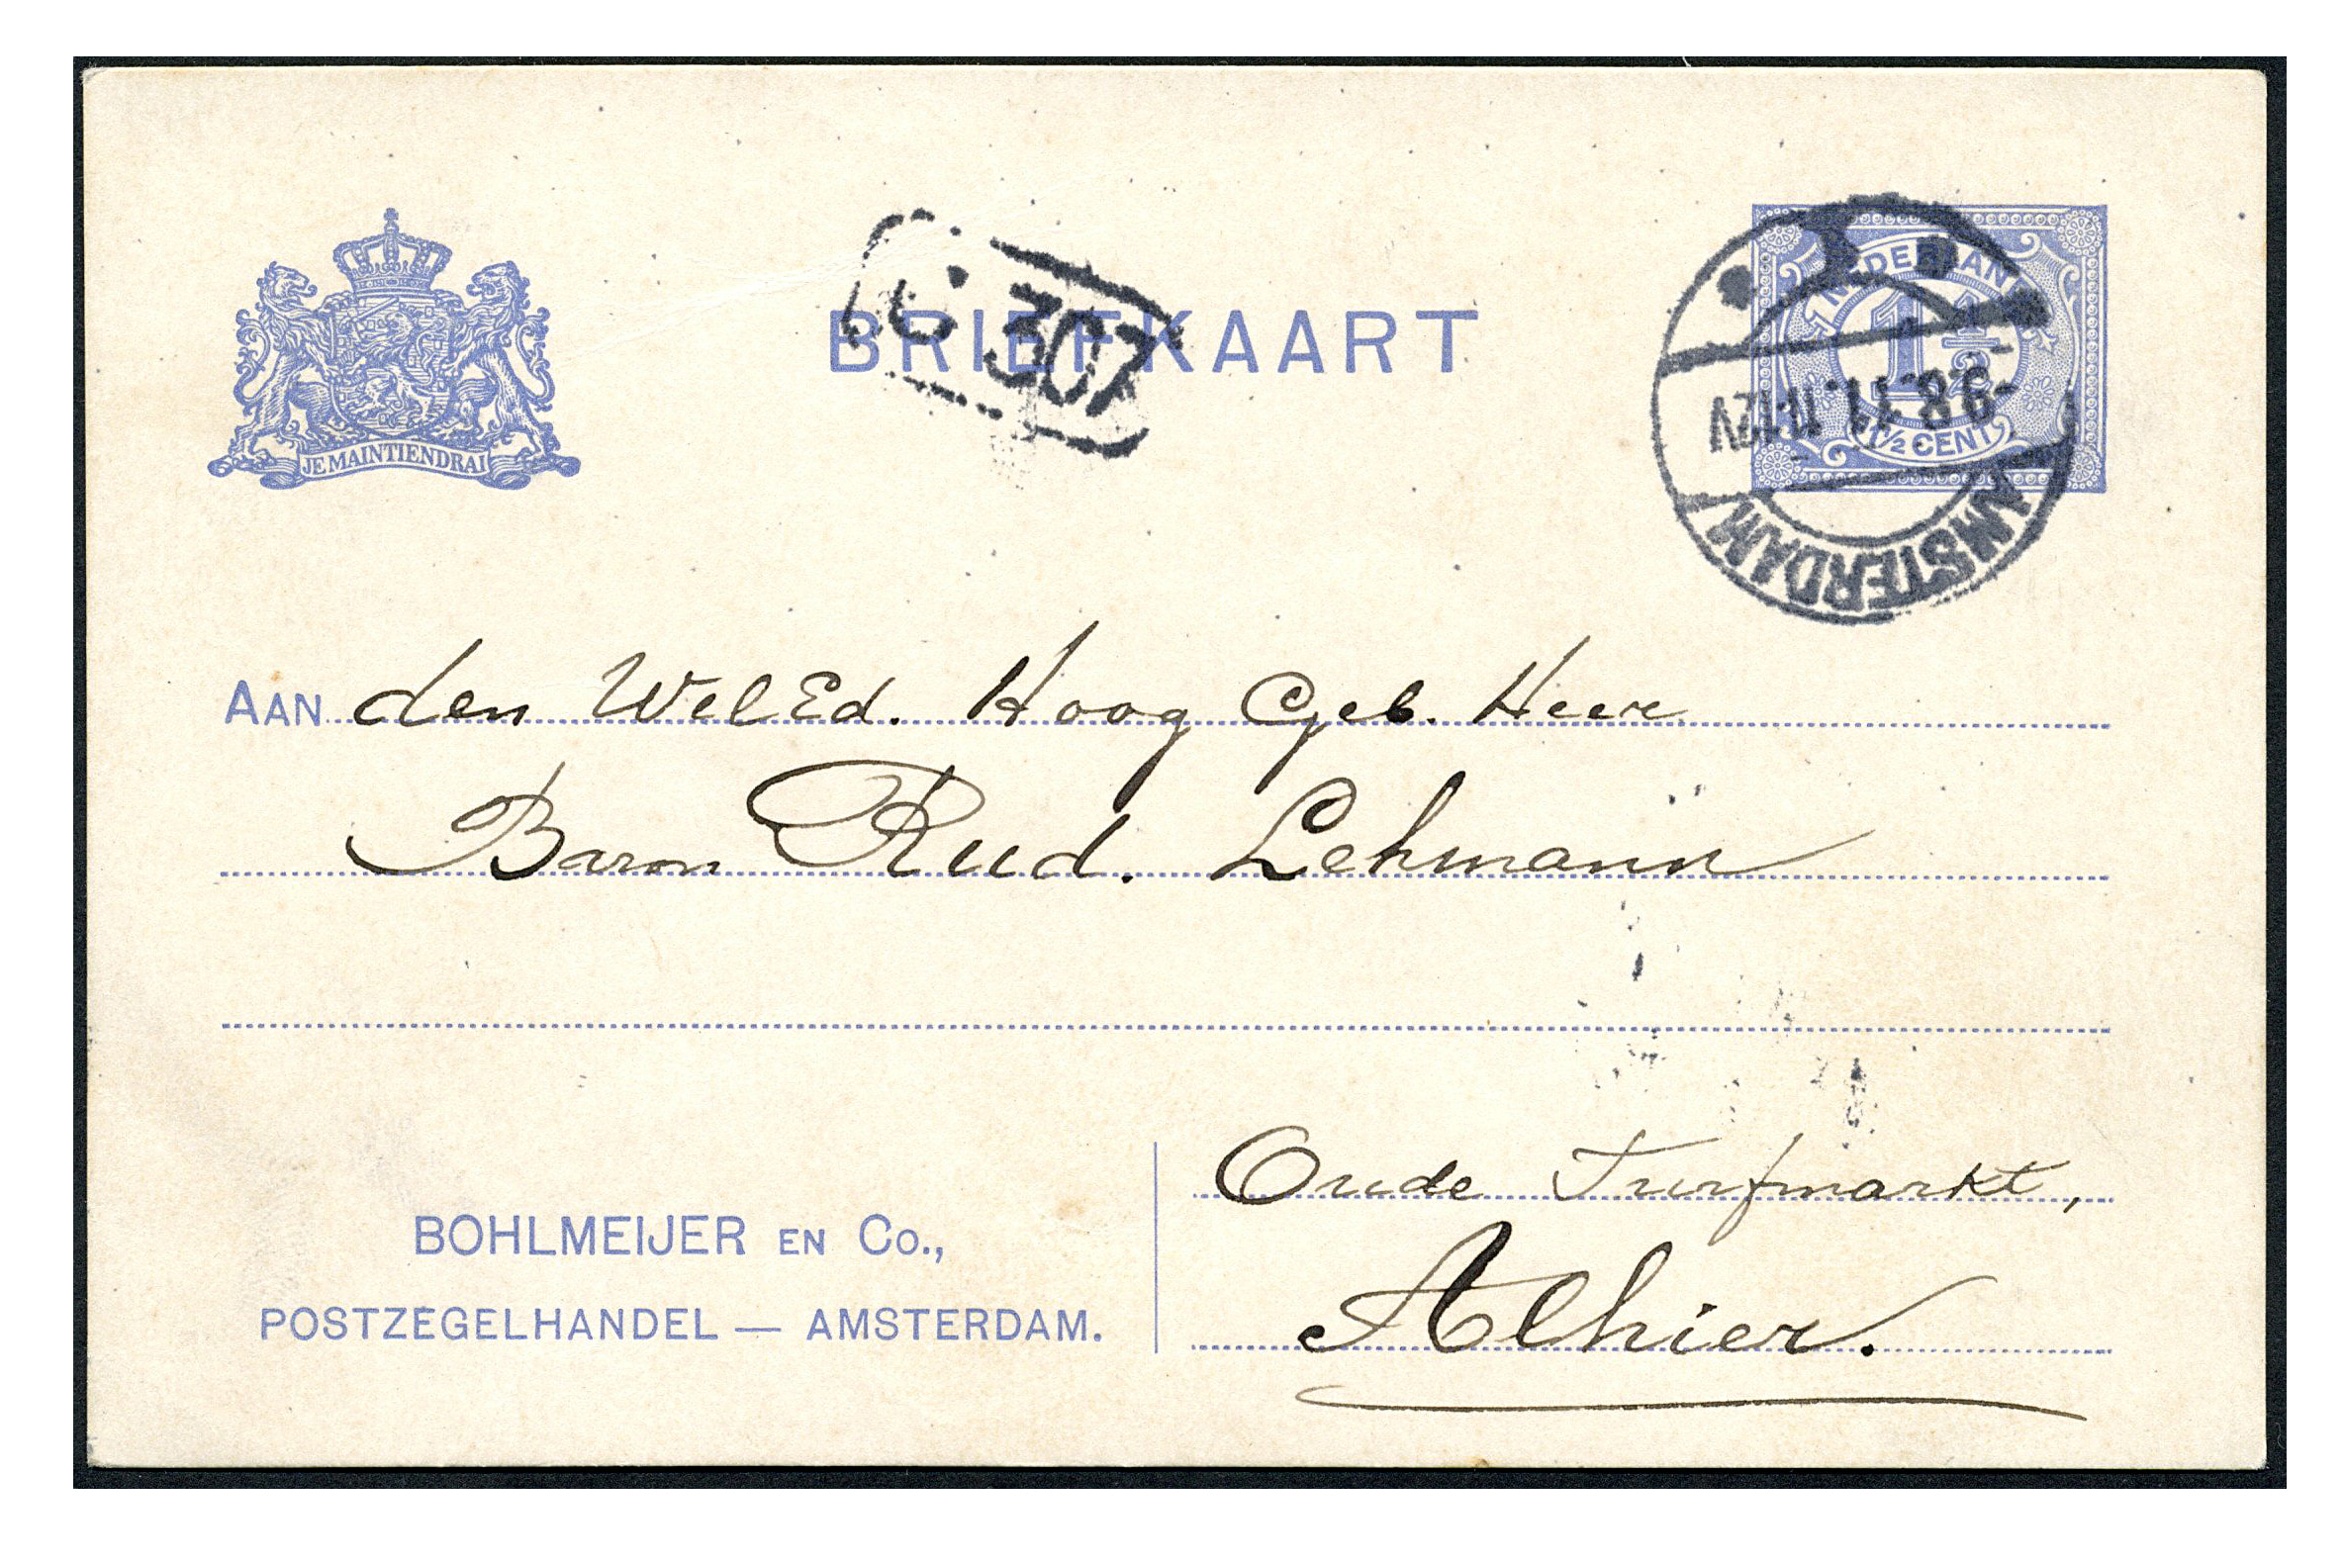 BRIEFKAART
307
NEDERLAND
1 1/2
1 1/2 CENT
-9.8.11. 11-12V
AMSTERDAM
JE MAINTIENDRAI
AAN den WelEd. Hoog Geb. Heer
Baron Rud. Lehmann
Oude Turfmarkt,
Alhier.
BOHLMEIJER EN Co.,
POSTZEGELHANDEL — AMSTERDAM.